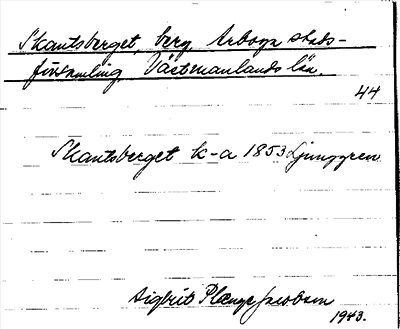 Skantsberget, berg, Arboga stads-
församling, Västmanlands län.
44
Skantsberget k-a 1853 Ljunggren
Sigbrit Plænge Jacobson
1943.